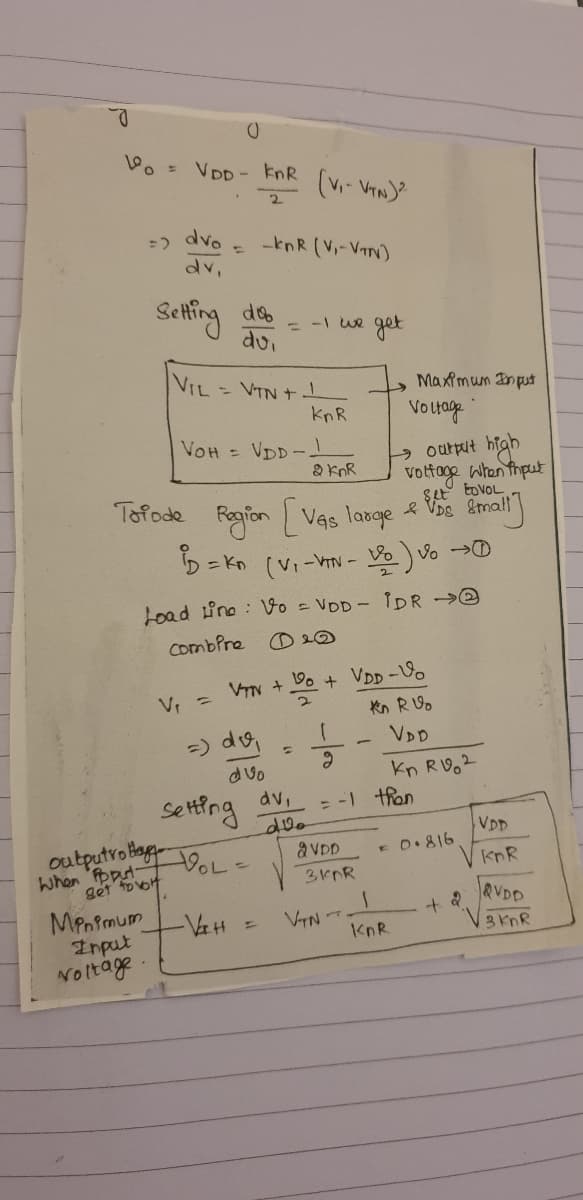 Vo = VDD - KnR/2 (V1 - VTN)²
=> dvo/dv1 = -KnR (V1 - VTN)
Setting dvo/dv1 = -1 we get
VIL = VTN + 1/KnR → Maximum Input Voltage
VOH = VDD - 1/2KnR → output high voltage when input set to VOL
Triode Region [VGS large & VDS small]
iD = Kn (V1 - VTN - Vo/2) Vo → ①
Load line : Vo = VDD - iDR → ②
combine ① & ②
V1 = VTN + Vo/2 + VDD - Vo/Kn R Vo
=> dv1/dvo = 1/2 - VDD/Kn R Vo²
Setting dv1/dvo = -1 then
output voltage when input set to VOH — VOL = √2VDD/3KnR = 0.816 √VDD/KnR
Minimum Input voltage. — VIH = VTN - 1/KnR + 2 √2VDD/3KnR